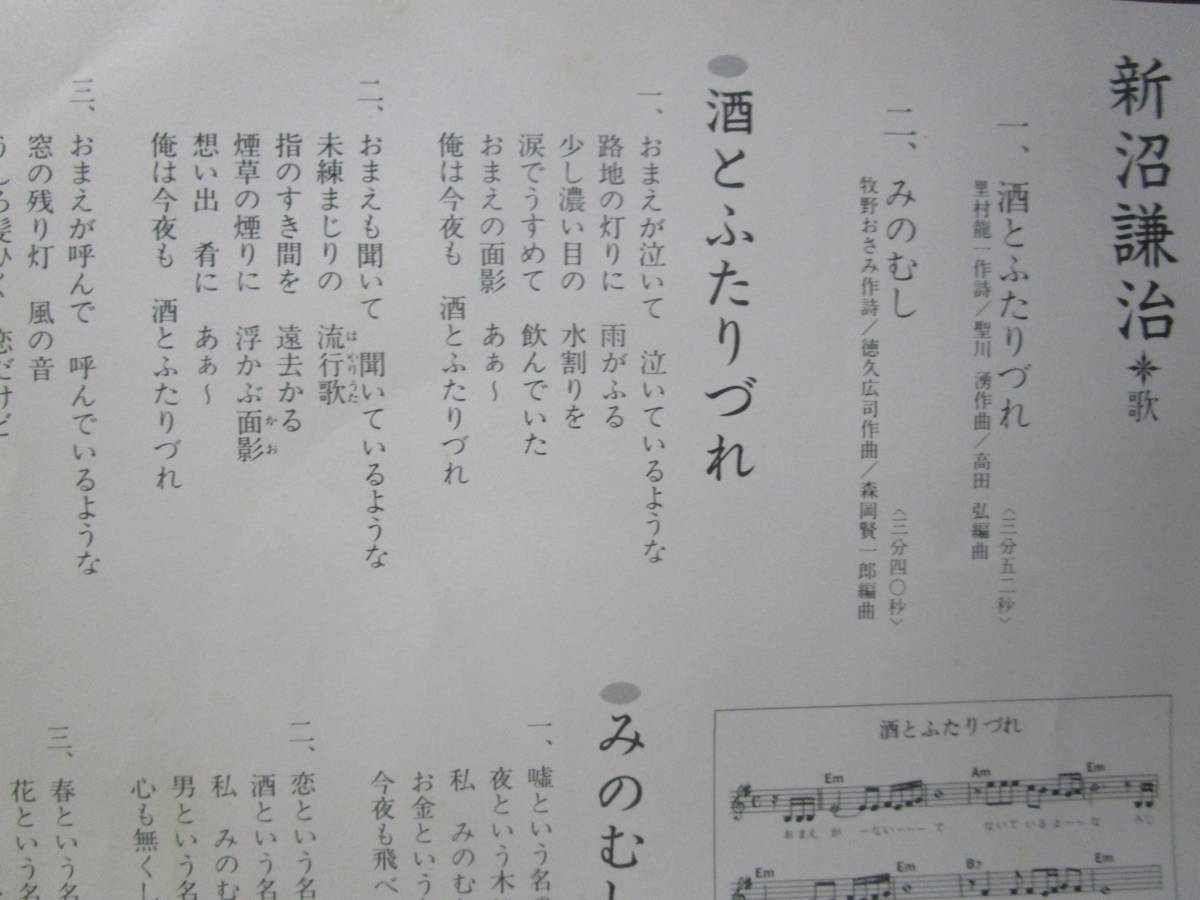 新沼謙治✴歌
一、酒とふたりづれ 〈三分五二秒〉
里村龍一作詩/聖川 湧作曲/高田 弘編曲
二、みのむし 〈三分四〇秒〉
牧野おさみ作詩/徳久広司作曲/森岡賢一郎編曲
●酒とふたりづれ
一、おまえが泣いて 泣いているような
路地の灯りに 雨がふる
少し濃い目の 水割りを
涙でうすめて 飲んでいた
おまえの面影 あぁ〜
俺は今夜も 酒とふたりづれ
二、おまえも聞いて 聞いているような
未練まじりの 流行歌
はやりうた
指のすき間を 遠去かる
煙草の煙りに 浮かぶ面影
かお
想い出 肴に あぁ〜
俺は今夜も 酒とふたりづれ
三、おまえが呼んで 呼んでいるような
窓の残り灯 風の音
うしろ髪ひく 恋だけど
●みのむし
一、嘘という名の
夜という木
私 みのむ
お金という
今夜も飛べ
二、恋という名
酒という名
私 みのむ
男という名
心も無くし
三、春という名
花という名
酒とふたりづれ
Em Am Em
おまえ が ーないーーーて ないて いる よーーな ろじ
Em Em B7 Em